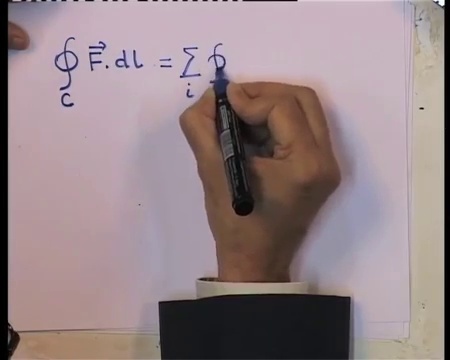 ∮_C F⃗.dl = Σ_i ∮